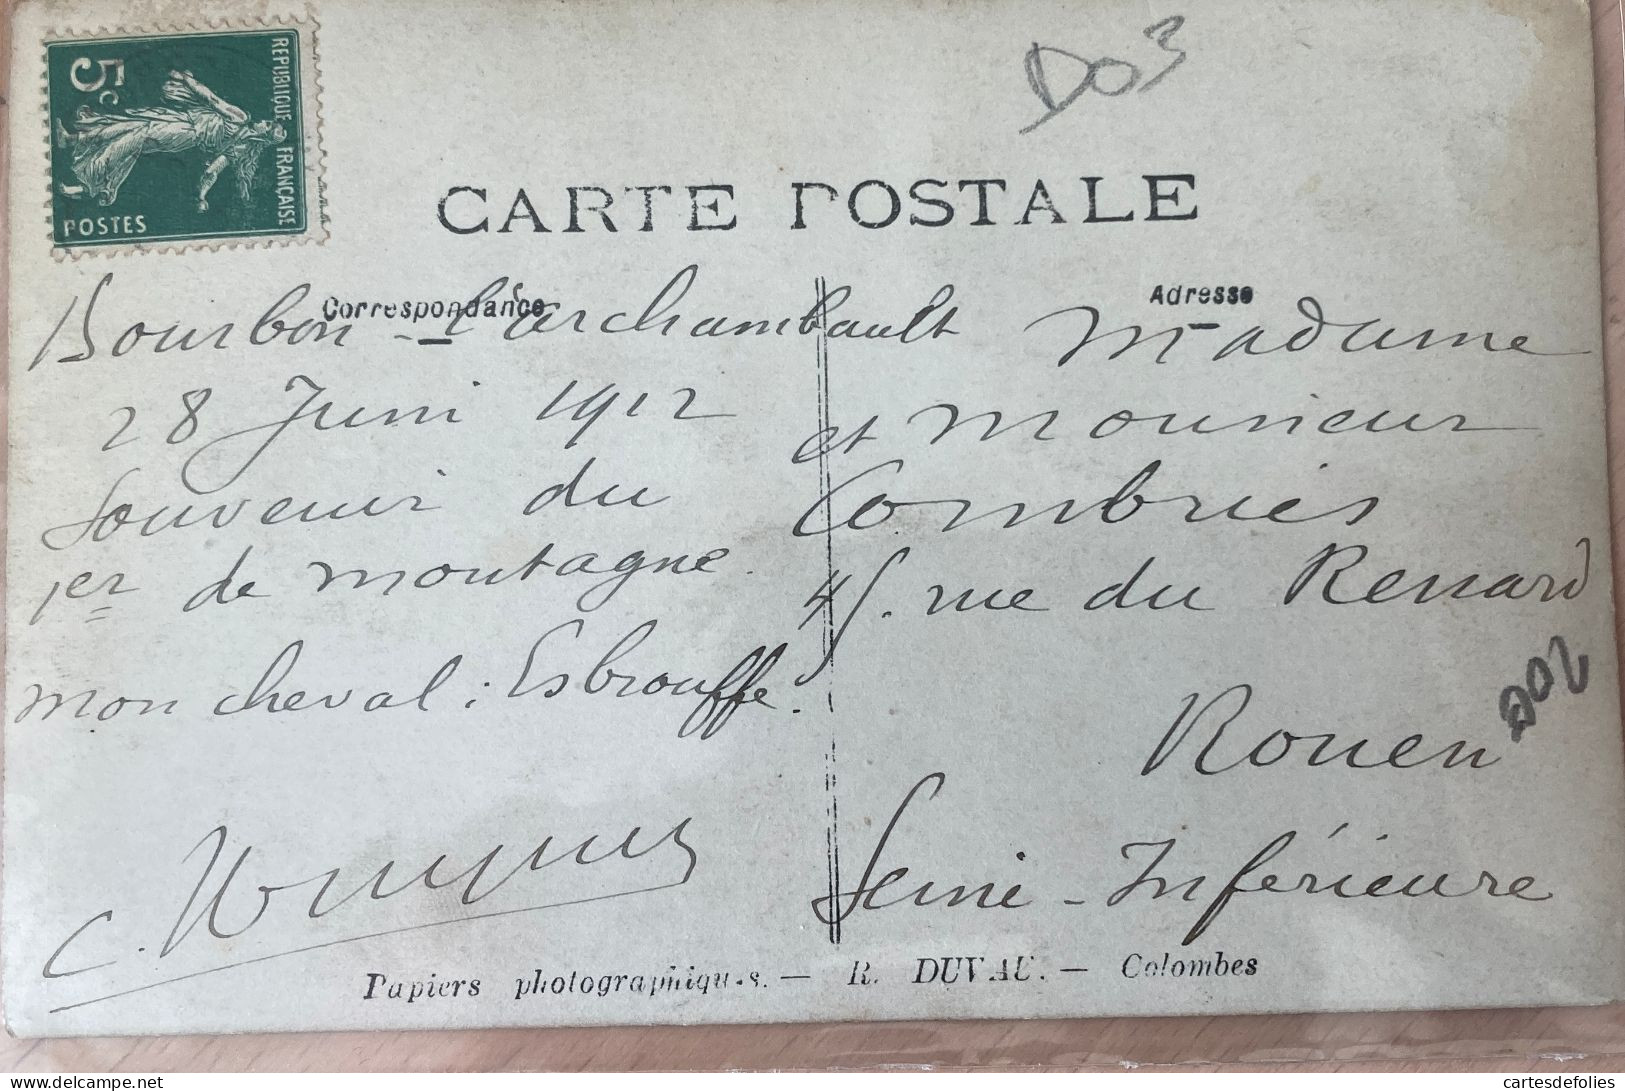 REPUBLIQUE FRANÇAISE
5c
POSTES
D03
CARTE POSTALE
Correspondance
Bourbon-l'archambault
28 Juni 1912
Souvenir du
1er de montagne.
mon cheval : Esbrouffe.
C.
Adresse
Madame
et Monsieur
Combries
45. rue du Renard
Rouen
Seine-Inférieure
Papiers photographiques. — R. DUVAU. — Colombes
cartesdefolies